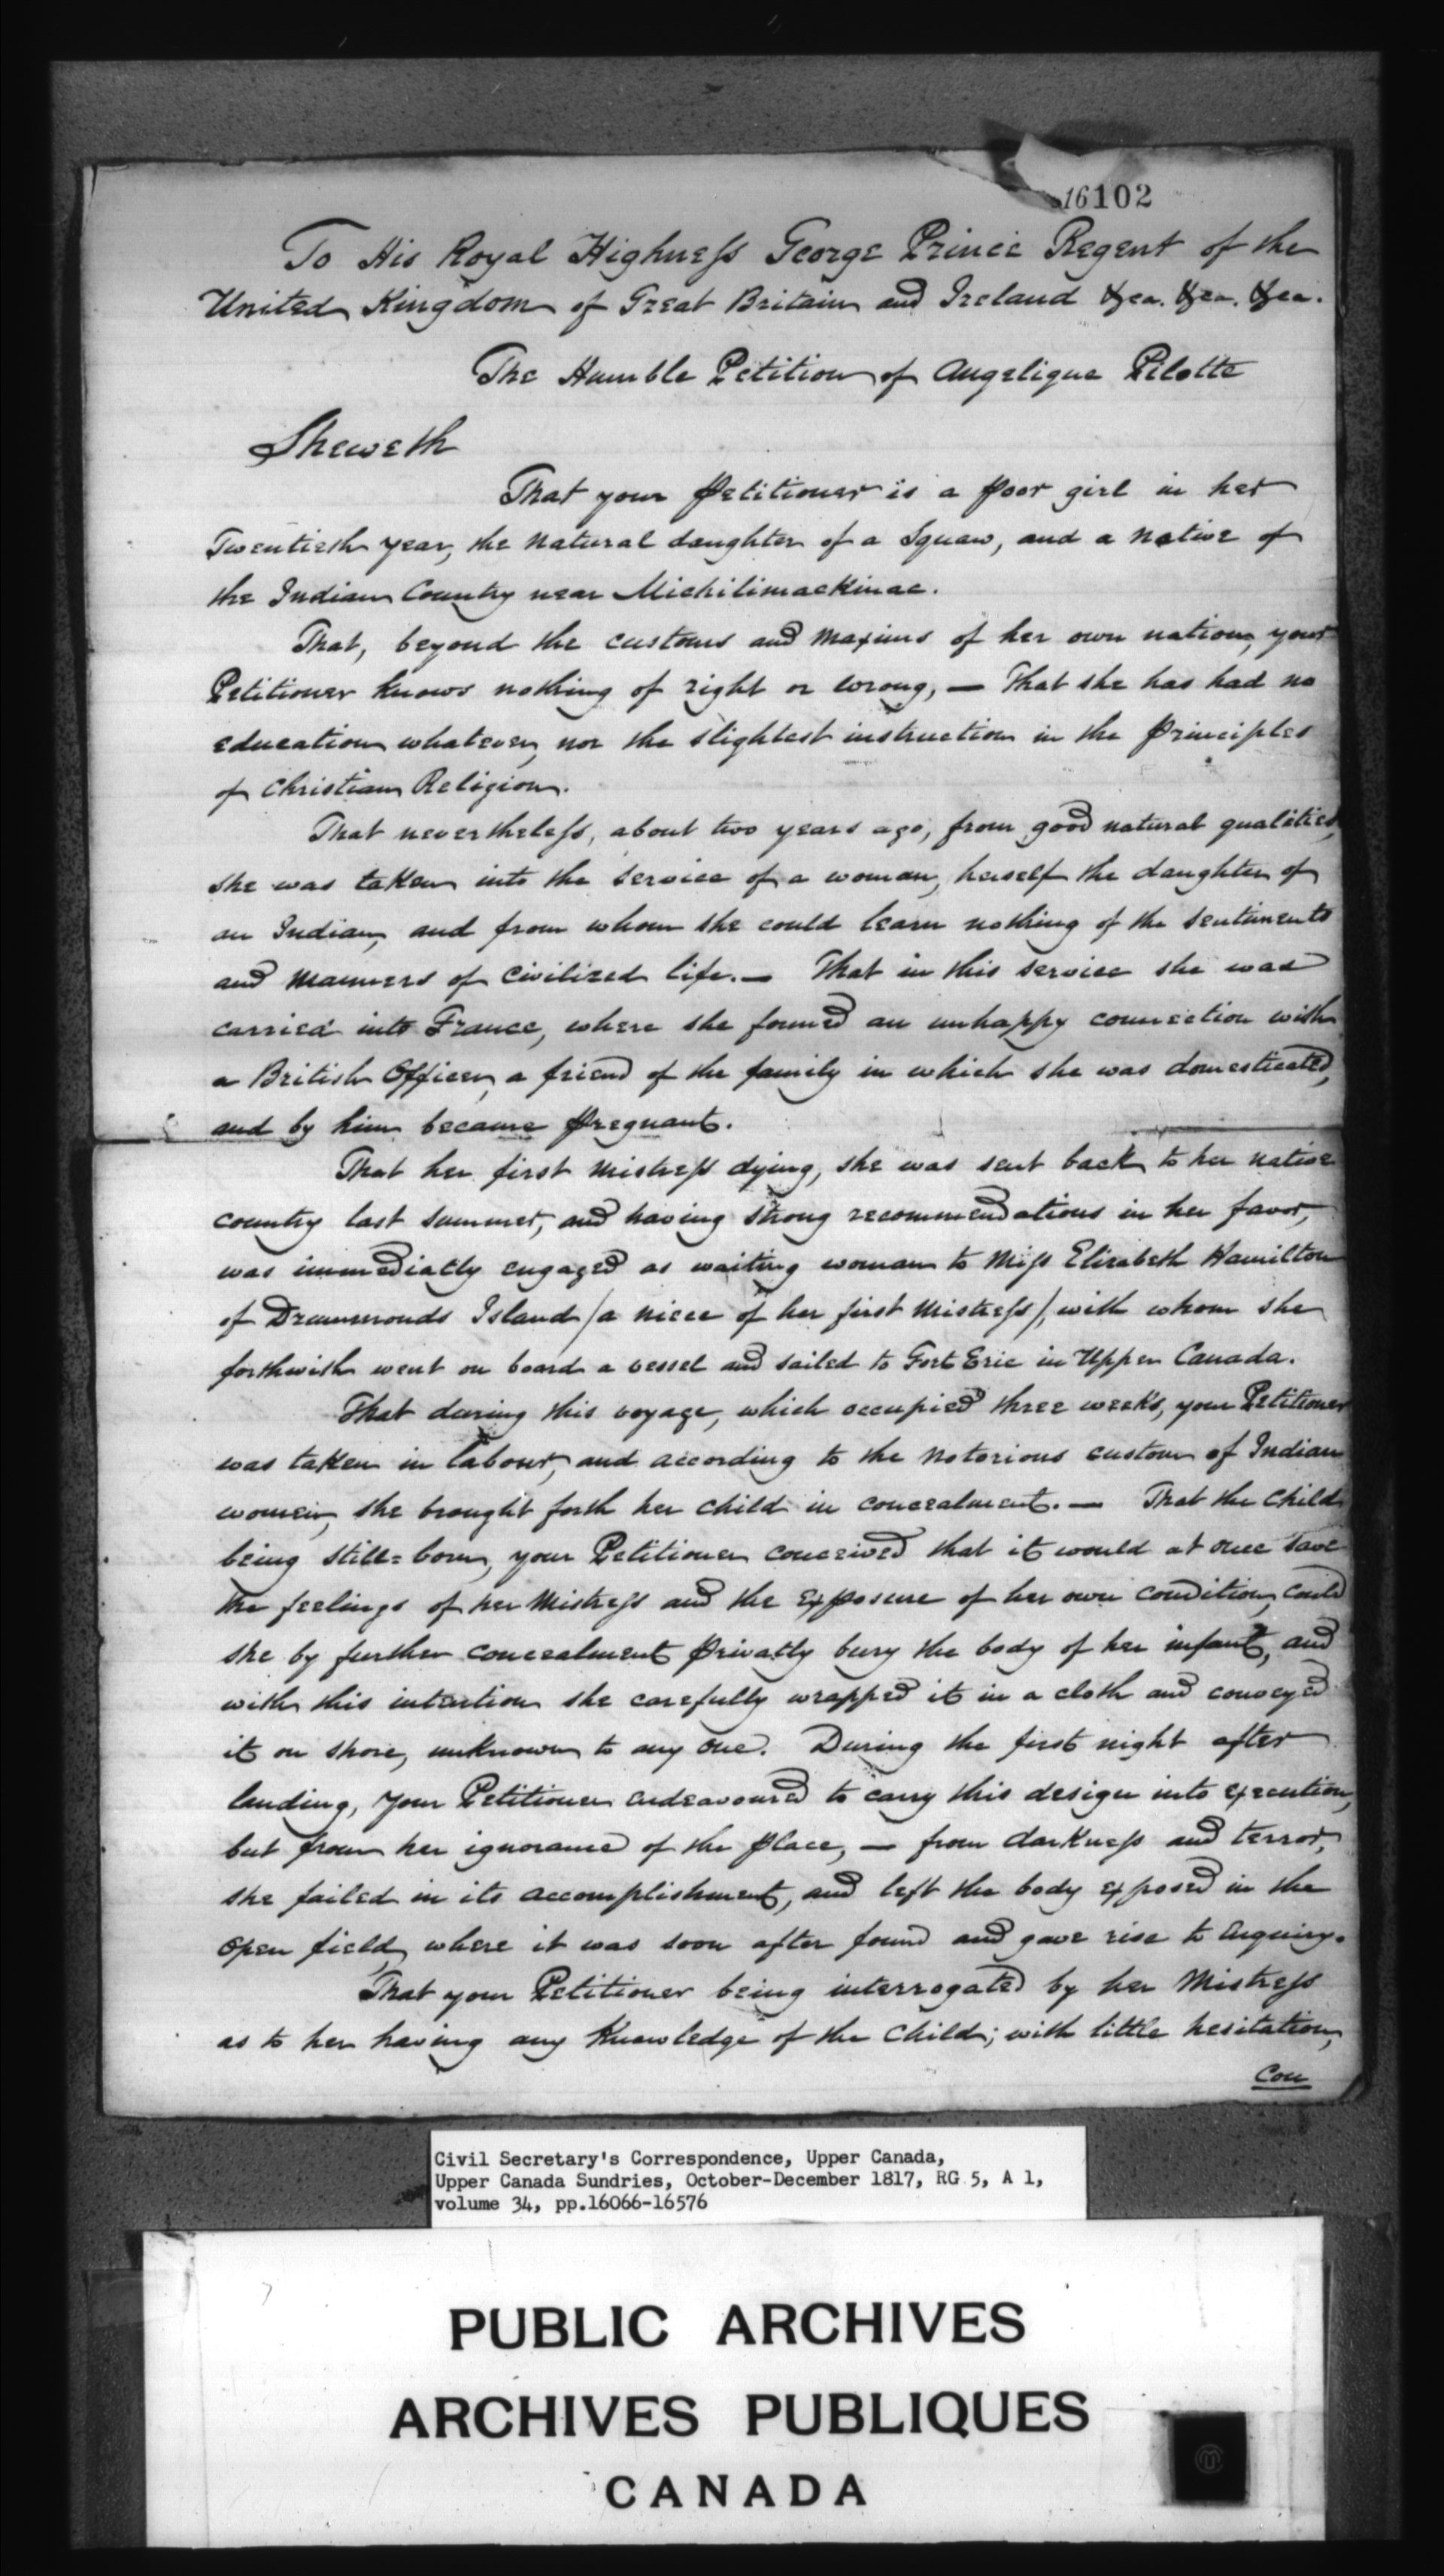 16102
To His Royal Highness George Prince Regent of the
United Kingdom of Great Britain and Ireland &ca. &ca. &ca.
The Humble Petition of Angelique Pilotte
Sheweth
That your Petitioner is a poor girl in her
Twentieth year, the natural daughter of a Squaw, and a native of
the Indian Country near Michilimackinac.
That, beyond the customs and maxims of her own nation, your
Petitioner knows nothing of right or wrong, — That she has had no
education whatever, nor the slightest instruction in the principles
of Christian Religion.
That nevertheless, about two years ago, from good natural qualities,
she was taken into the service of a woman, herself the daughter of
an Indian, and from whom she could learn nothing of the sentiments
and manners of civilized life. — That in this service she was
carried into France, where she formed an unhappy connection with
a British Officer, a friend of the family in which she was domesticated,
and by him became pregnant.
That her first Mistress dying, she was sent back to her native
country last summer, and having strong recommendations in her favor,
was immediatly engaged as waiting woman to Miss Elizabeth Hamilton
of Drummonds Island /a niece of her first Mistress/, with whom she
forthwith went on board a vessel and sailed to Fort Erie in Upper Canada.
That during this voyage, which occupied three weeks, your Petitioner
was taken in labour, and according to the notorious custom of Indian
women, she brought forth her child in concealment. — That the child
being still=born, your Petitioner conceived that it would at once save
the feelings of her Mistress and the exposure of her own condition, could
she by further concealment privatly bury the body of her infant, and
with this intention she carefully wrapped it in a cloth and conveyed
it on shore, unknown to any one. During the first night after
landing, your Petitioner endeavoured to carry this design into execution,
but from her ignorance of the place, — from darkness and terror,
she failed in its accomplishment, and left the body exposed in the
open field, where it was soon after found and gave rise to enquiry.
That your Petitioner being interrogated by her Mistress
as to her having any knowledge of the child; with little hesitation,
Con
Civil Secretary's Correspondence, Upper Canada,
Upper Canada Sundries, October-December 1817, RG 5, A 1,
volume 34, pp.16066-16576
PUBLIC ARCHIVES
ARCHIVES PUBLIQUES
CANADA